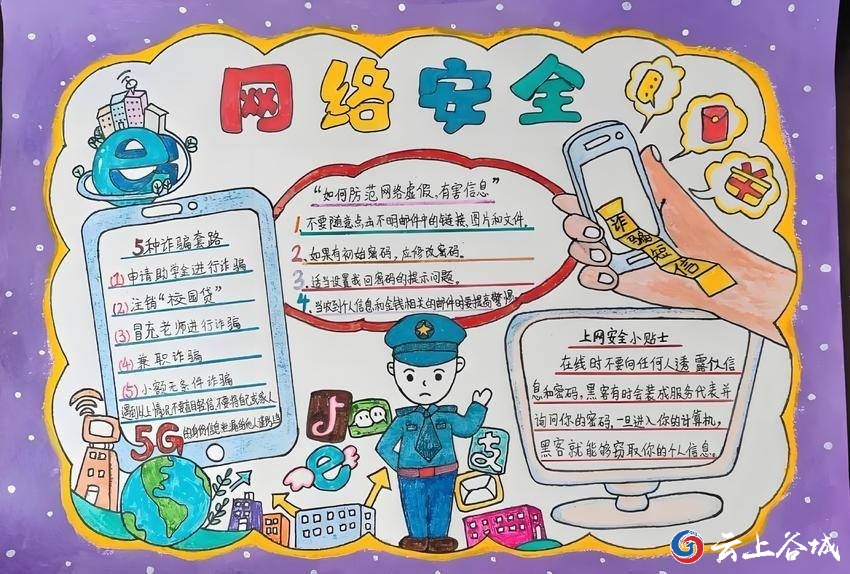 网络安全
5种诈骗套路
(1)申请助学金进行诈骗
(2)注销“校园贷”
(3)冒充老师进行诈骗
(4)兼职诈骗
(5)小额无条件诈骗
遇到以上情况不要盲目轻信,不要将自己或家人
的身份信息
5G
“如何防范网络虚假、有害信息”
1.不要随意点击不明邮件中的链接、图片和文件。
2.如果有初始密码,应修改密码。
3.适当设置找回密码的提示问题。
4.当收到个人信息和金钱相关的邮件时要提高警惕
诈骗短信
上网安全小贴士
在线时不要向任何人透露似信
息和密码,黑客有时会装成服务代表并
询问你的密码,一旦进入你的计算机,
黑客就能够窃取你的个人信息。
支
云上谷城